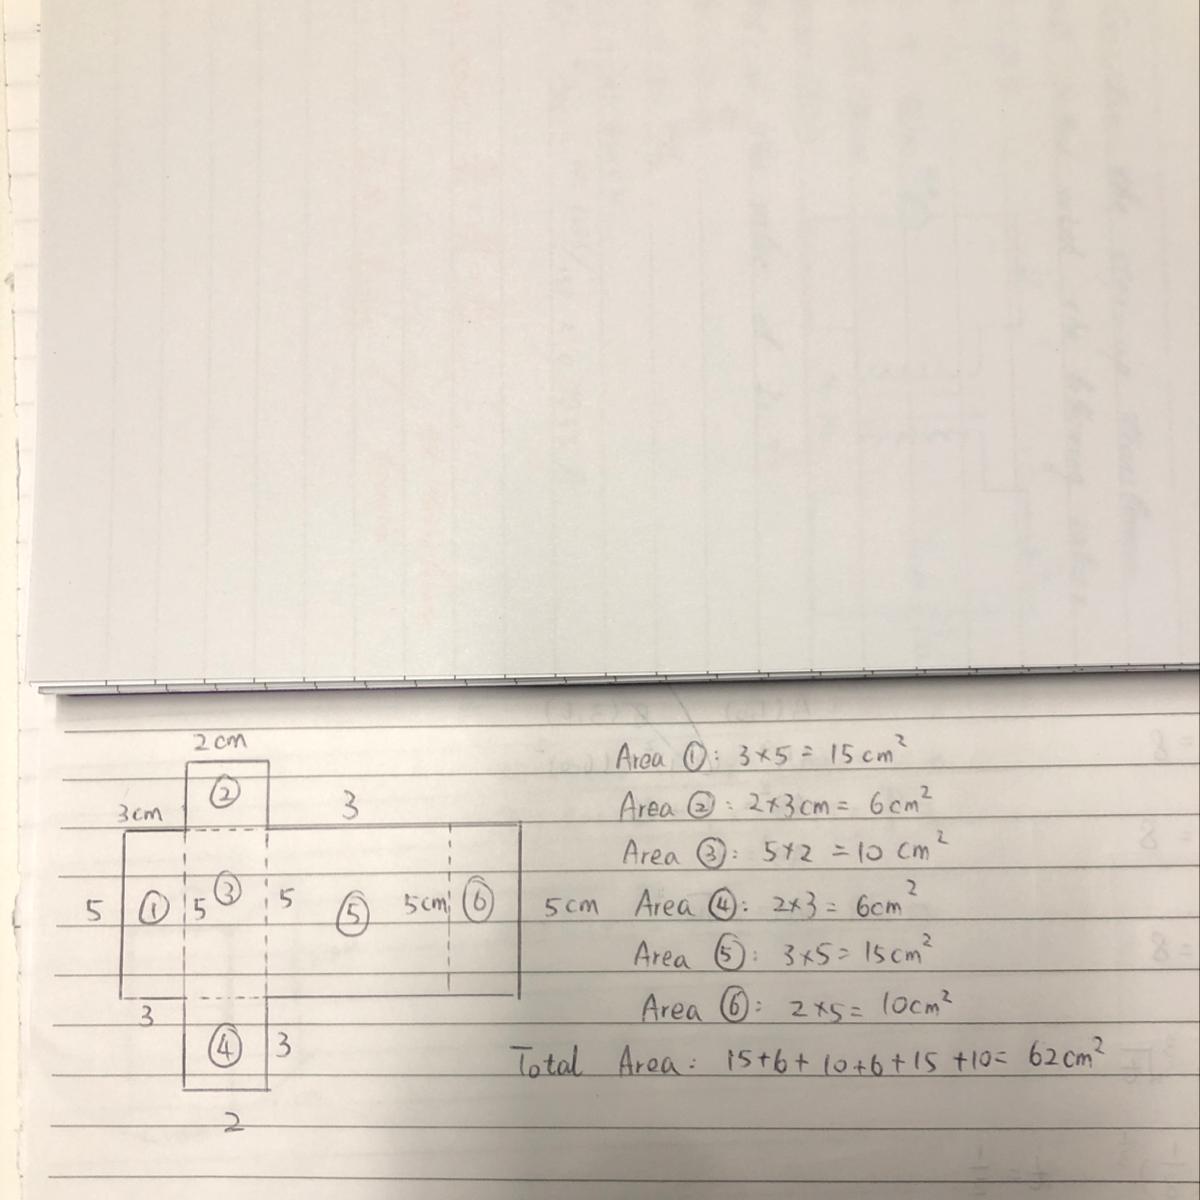 2cm
②
3cm
3
5
①
5
③
5
⑤
5cm
⑥
5cm
3
④
3
2
Area ①: 3×5= 15cm²
Area ②: 2×3cm= 6cm²
Area ③: 5×2 =10 cm²
Area ④: 2×3= 6cm²
Area ⑤: 3×5= 15cm²
Area ⑥: 2×5= 10cm²
Total Area: 15+6+10+6+15+10= 62cm²